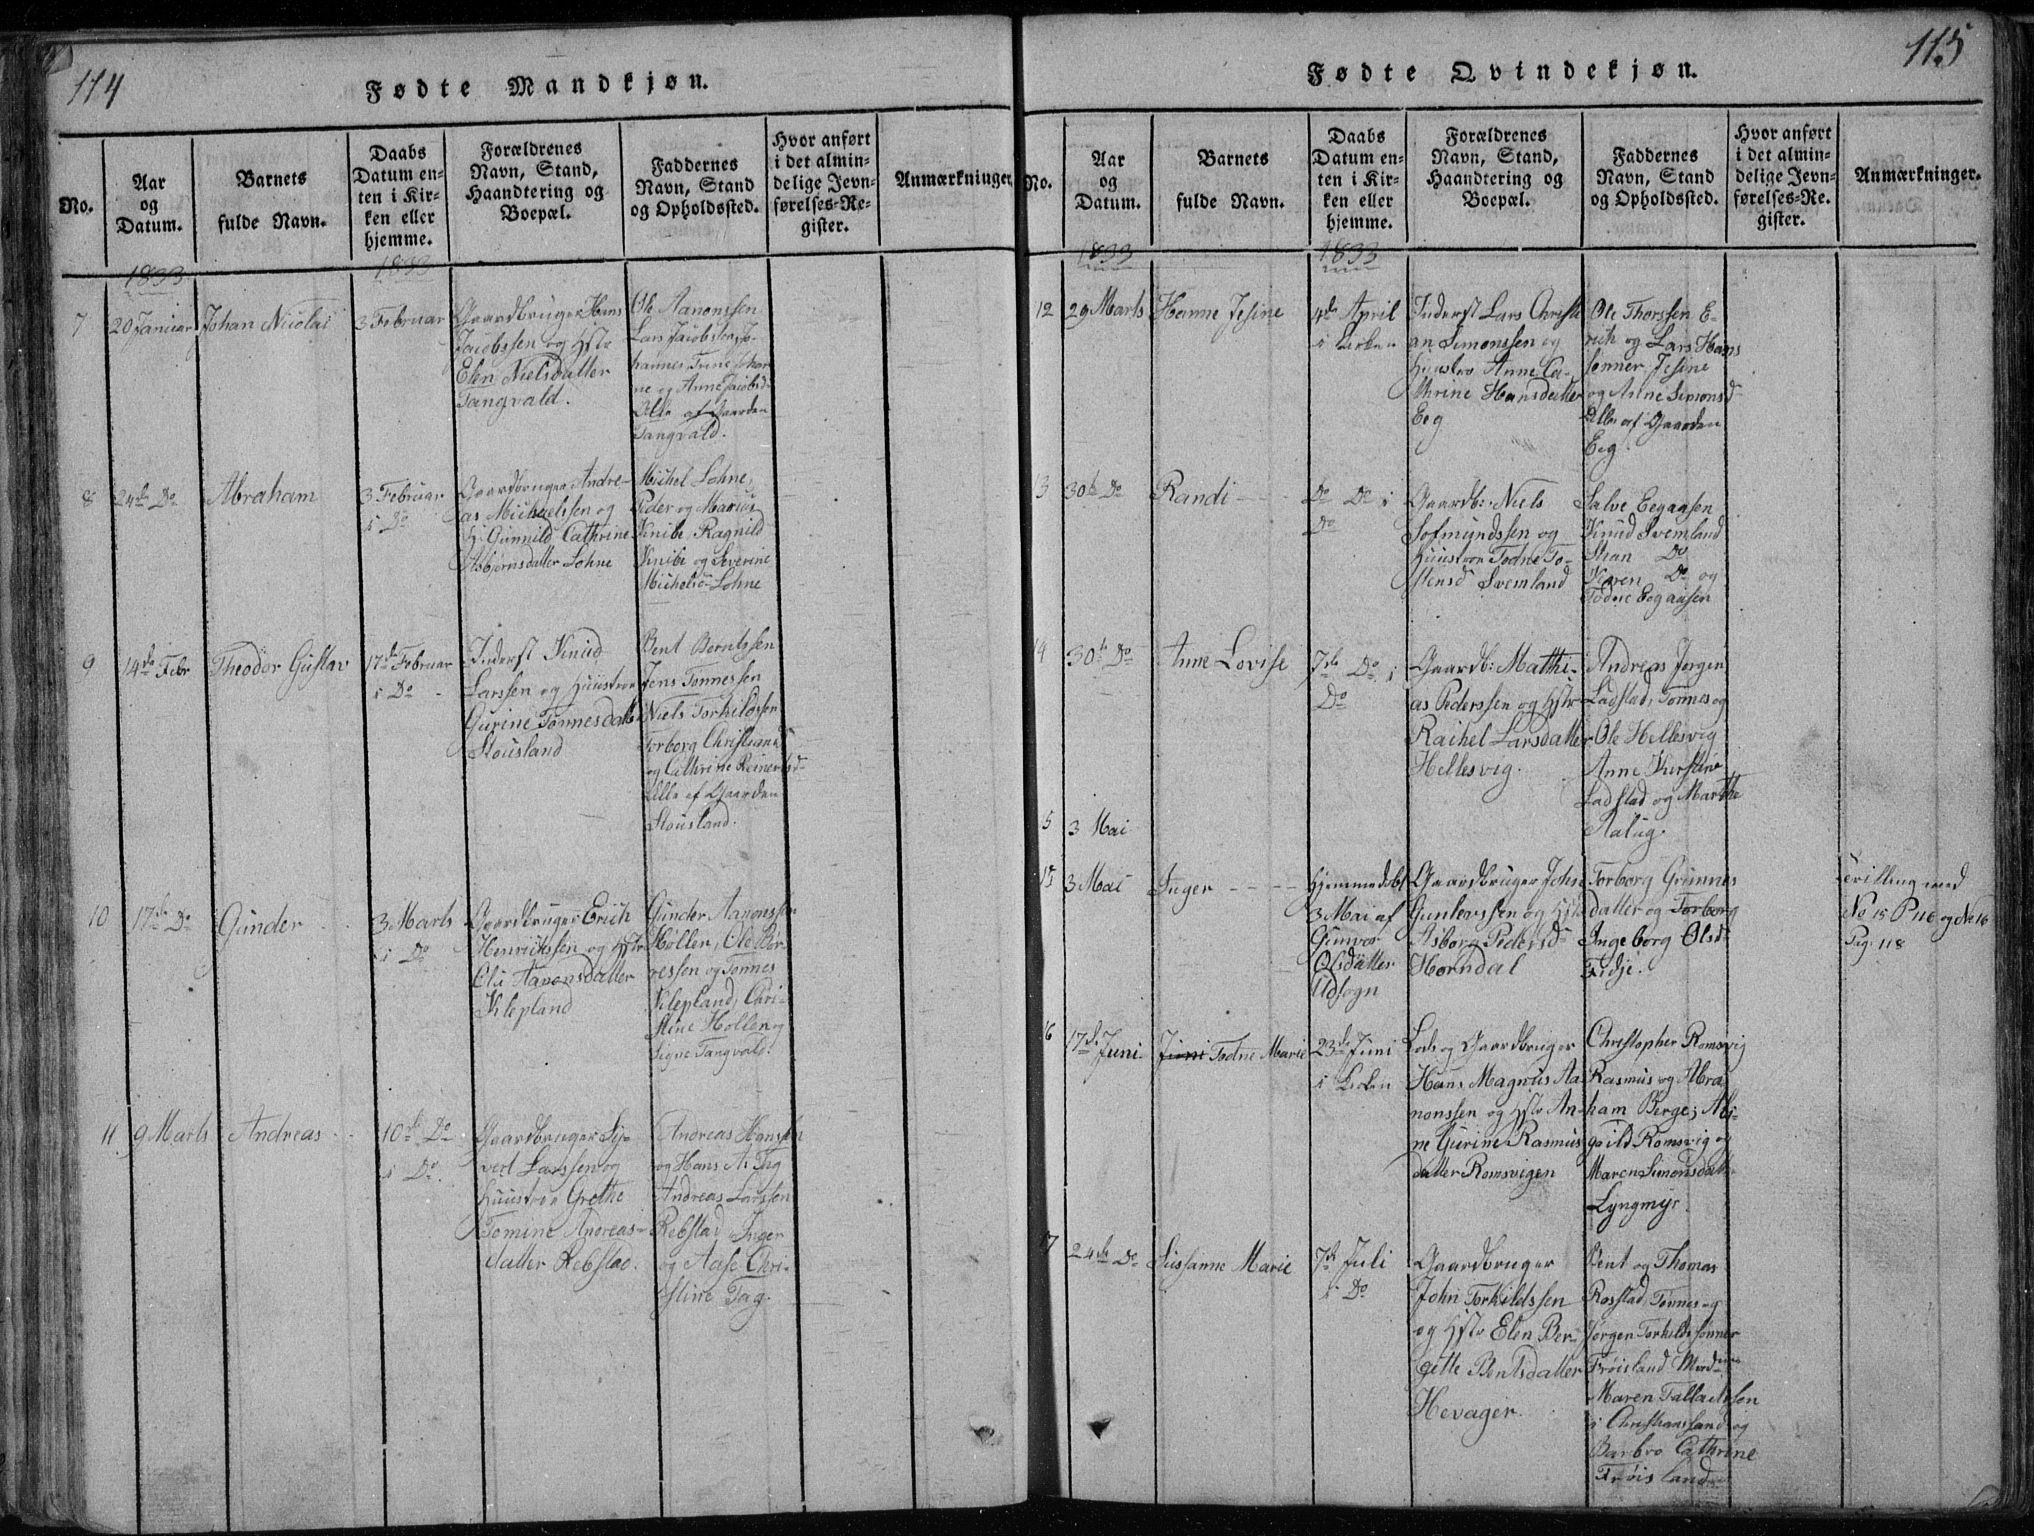 114
Fødte Mandkjøn.
No.
Aar
og
Datum.
Barnets
fulde Navn.
Daabs
Datum en-
ten i Kir-
ken eller
hjemme.
Forældrenes
Navn, Stand,
Haandtering og
Boepæl.
Faddernes
Navn, Stand
og Opholdssted.
Hvor anført
i det almin-
delige Jevn-
førelses-Re-
gister.
Anmærkninger.
1833
1833
7
20 Januar
Johan Nicolai
3 Februar
Gaardbruger Hans
Jacobssen og Hstr
Elen Nielsdatter
Tangvald.
Ole Aanonssen
Lars Jacobssen, Jo-
hannes, Trine Johan-
ne og Anne Jacobsd
Alle af Gaarden
Tangvald.
8
24de Do
Abraham
3 Februar
i Do
Gaardbruger Andre-
as Michaelssen og
H. Gunnild Cathrine
Asbjørnsdatter Lohne
Michel Lohne,
Peder og Marius
Knibe, Ragnild
Knibe og Severine
Michelsd Lohne
9
14de Febr
Theodor Gustav
17de Februar
i Do
Inderst Knud
Larssen og Huustroe
Gurine Tønnesdatt
Stousland
Bent Berntssen
Jens Tønnessen
Niels Torkildssen
Torborg Christiansd
og Cathrine Reinertsd-
Alle af Gaarden
Stousland.
10
17de Do
Gunder
3 Marts
i Do
Gaardbruger Erich
Henrikssen og Hstr
Oli Aanonsdatter
Klepland
Gunder Aanonssen
Høllen, Ole Bør-
ressen og Tønnes
Klepland, Chri-
stine Høllen og
Signe Tangvald.
11
9 Marts
Andreas
10de Do
i Do.
Gaardbruger Sy-
vert Larssen og
Huustroe Grethe
Tomine Andreas-
datter Rebstad.
Andreas Hanssen
og Hans A. Tag
Andreas Larssen
Rebstad, Inger
og Aase Chri-
stine Tag.
115
Fødte Qvindekjøn.
No.
Aar
og
Datum.
Barnets
fulde Navn.
Daabs
Datum en-
ten i Kir-
ken eller
hjemme.
Forældrenes
Navn, Stand,
Haandtering og
Boepæl.
Faddernes
Navn, Stand
og Opholdssted.
Hvor anført
i det almin-
delige Jevn-
førelses-Re-
gister.
Anmærkninger.
1833
1833
12
29 Marts
Hanne Jesine
4de April
i Kirken
Inderst Lars Christi
an Simonssen og
Huustro Anne Ca-
thrine Hansdatter
Eeg
Ole Thorssen E-
rich og Lars Hans
sønner, Jesine
og Anne Simonsd
Alle af Gaarden
Eeg.
13
30te Do
Randi
Do Do i
Do
Gaardb: Niels
Sofmundssen og
Huustroe Todne To-
stensd Svemland
Salve Eegaasen
Knud Svemland
Stian Do
Karen Do og
Todne Eegaasen
14
30te Do
Anne Lovise
7de Do i
Do
Gaardb: Matthi-
as Pederssen og Hstr
Rachel Larsdatter
Hellesvig.
Andreas Jørgen
Ladstad, Tønnes og
Ole Hellesvig
Anne Kirstine
Ladstad og Marthe
Aalug.
15
3 Mai
15
3 Mai
Inger
Hjemmedøbt
3 Mai af
Gunvor
Olsdatter
Udsogn
Gaardbruger John
Gunlevssen og Hstr
Asborg Pedersd
Horndal
Torborg Grunnes
datter og Torborg
Ingeborg Olsd
Fidje.
Trilling med
No 15 P 116 og No 16
Pag. 118
16
17de Juni
Juni Todne Marie
23de Juni
i Kirken
Lods og Gaardbruger
Hans Magnus Aa
nonssen og Hstr An-
ne Gurine Rasmus
datter Romsvigen
Christopher Romsvig
Rasmus og Abra
ham Berge, Abi-
gaild Romsvig og
Maren Simonsdatt
Lyngmyr.
17
24de Do
Susanne Marie
7de Juli
i Do
Gaardbruger
John Torkildssen
og Hstr Elen Ber-
gette Bentsdatter
Hevager.
Bent og Thomas
Rosstad, Tønnes og
Jørgen Torkildssønner
Frøisland
Maren Tallachsen
i Christianssand og
Barbro Cathrine
Frøisland